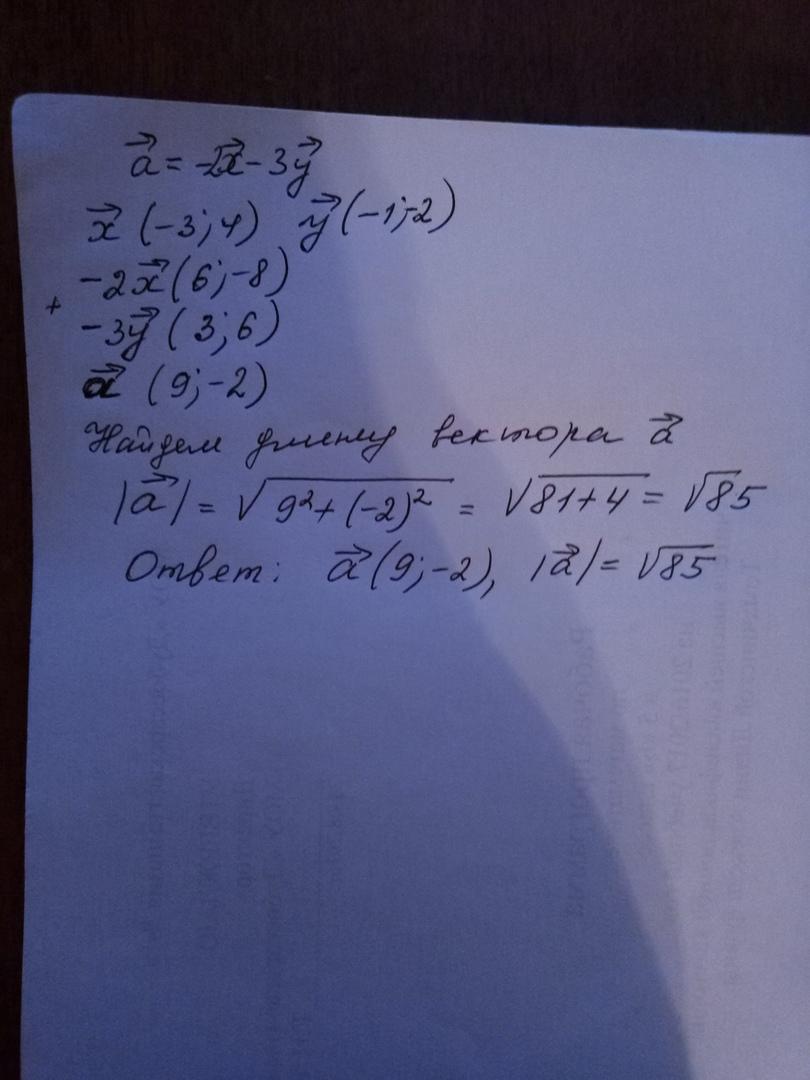 a⃗ = -2x⃗ - 3y⃗
x⃗ (-3; 4) y⃗ (-1; -2)
-2x⃗ (6; -8)
+
-3y⃗ (3; 6)
a⃗ (9; -2)
Найдем длину вектора a⃗
|a⃗| = √(9² + (-2)²) = √(81+4) = √85
Ответ: a⃗ (9; -2), |a⃗| = √85